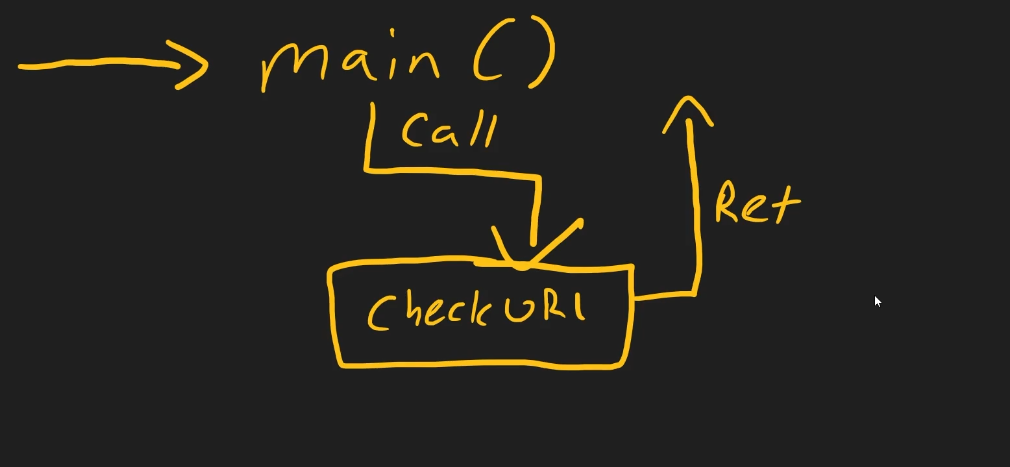 main ()
Call
Ret
Check URl